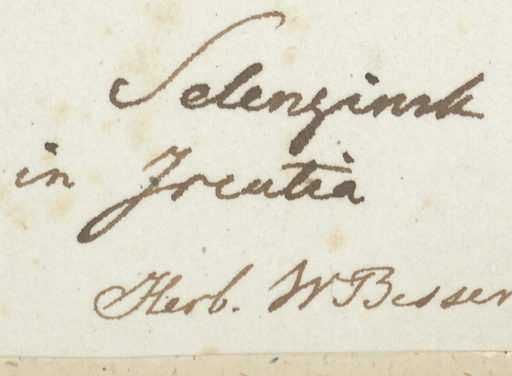 Selenginsk
in Ircutia
Herb. W Besser